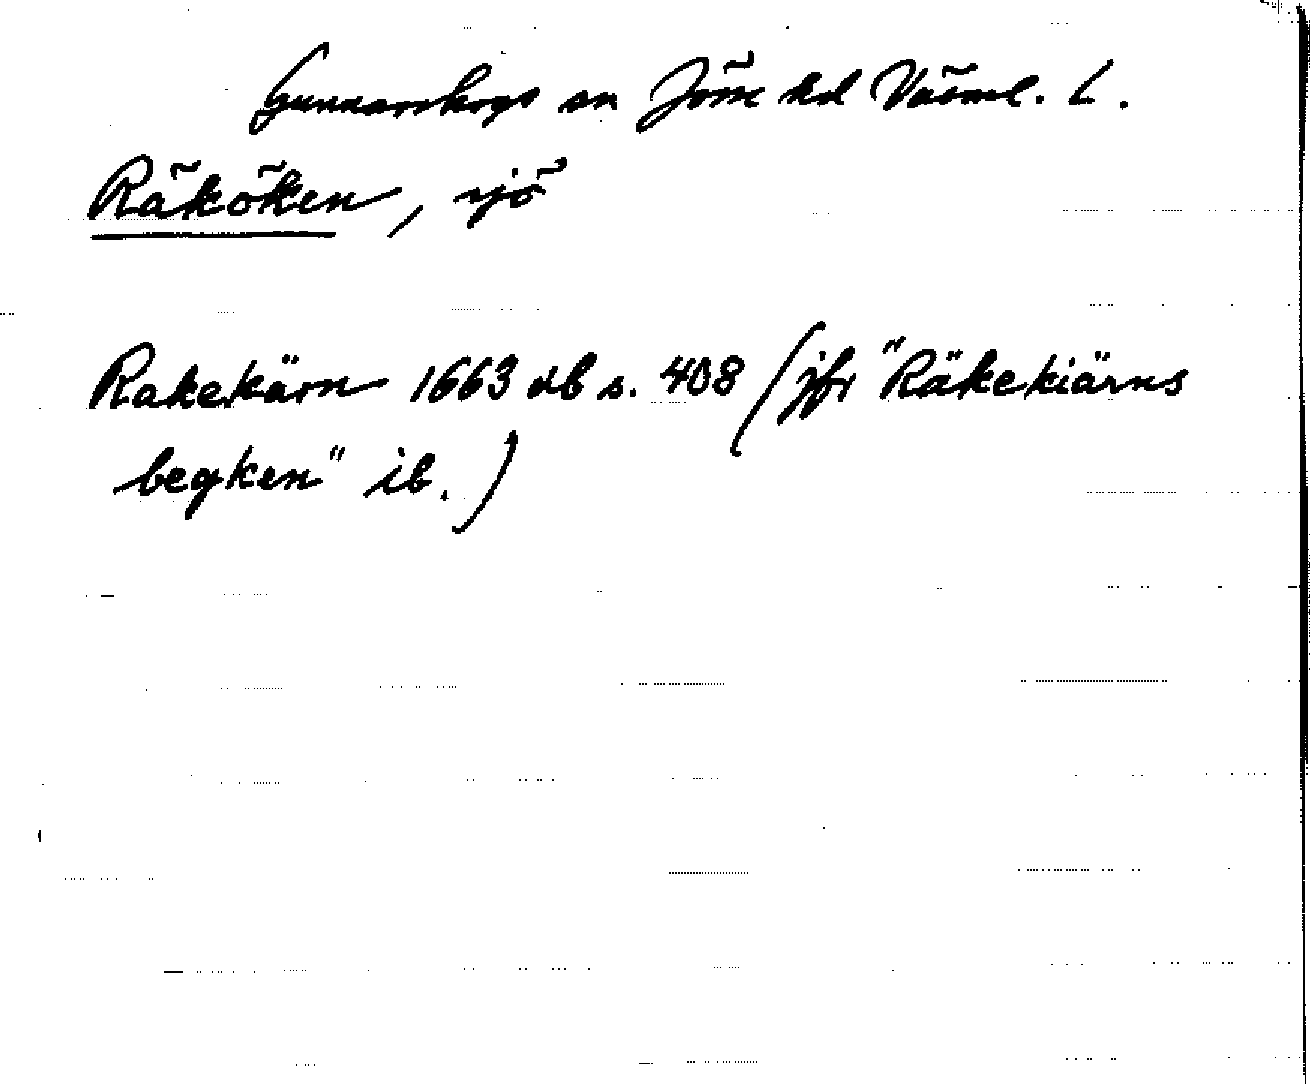 Gunnarskogs sn Jösse hd Värml. L.
Räköken, sjö
Rakekärn 1663 db s. 408 (jfr "Räkekiärns
begken" ib.)